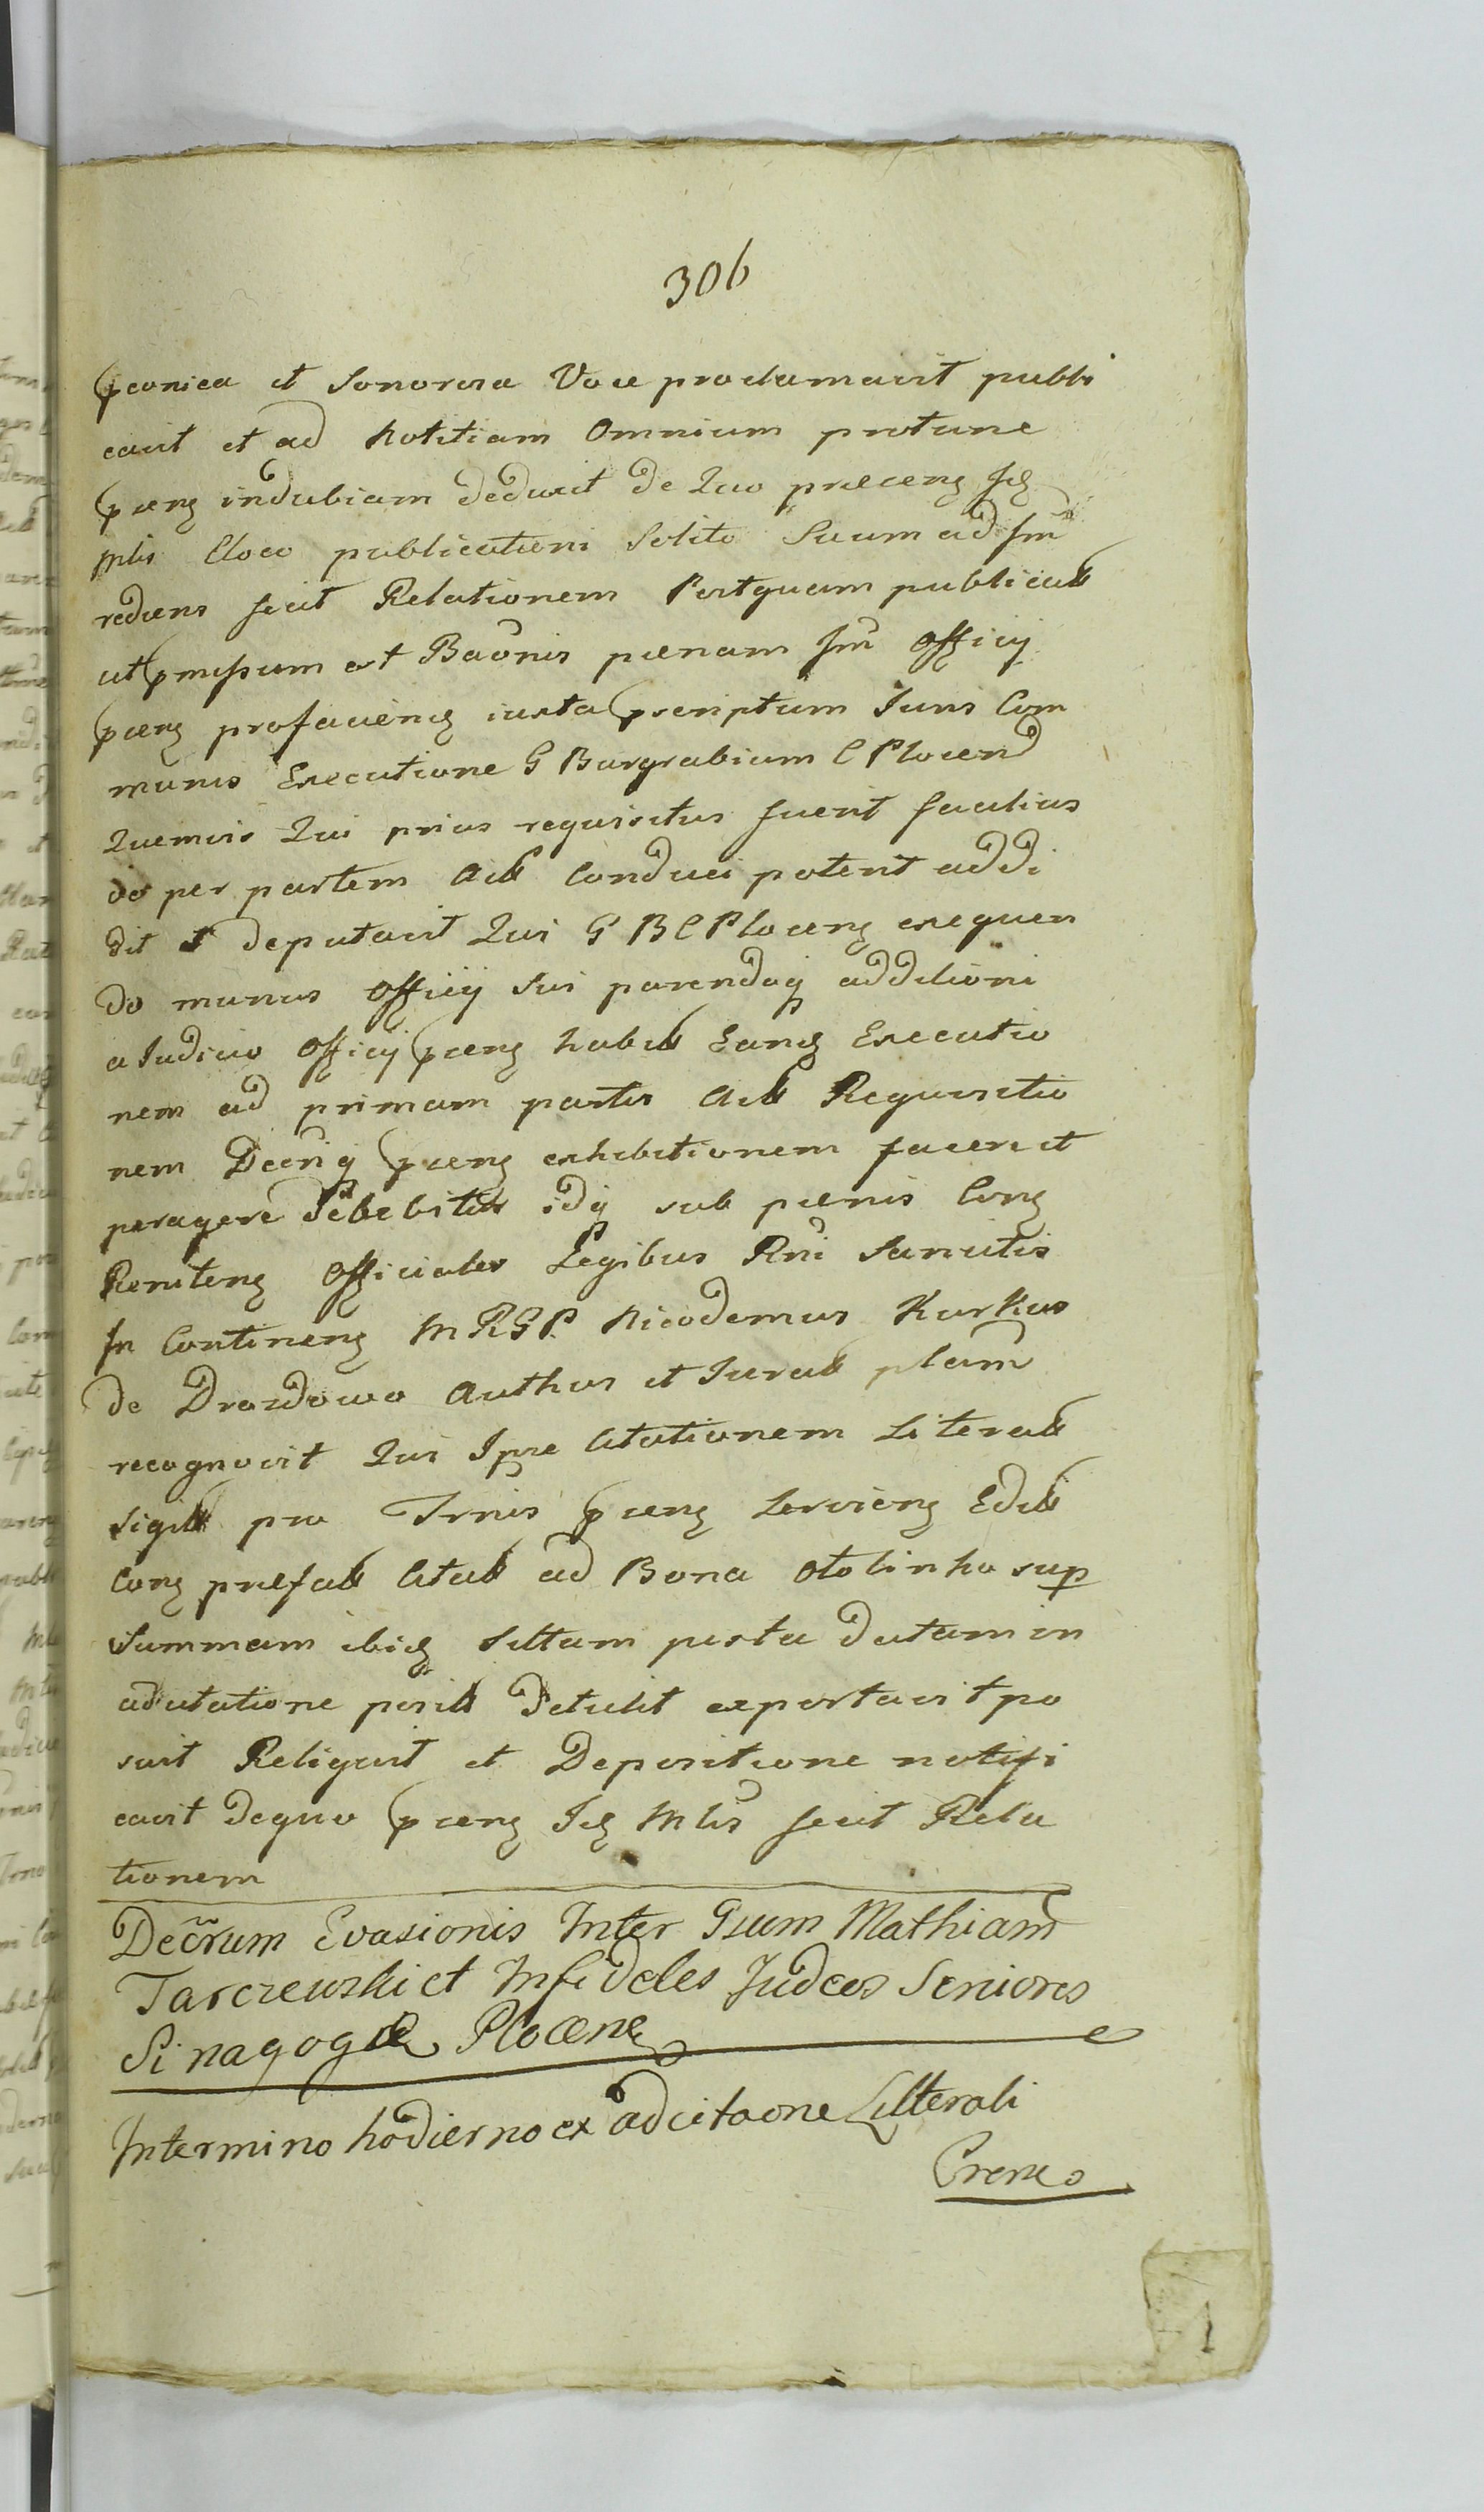 306
pconica et Sonorosa Voce proclamavit publi
cavit et ad Notitiam Omnium protunc
pneng indubiam deduxit de Quo præceng Jꝗ
Mlis Cloco publicationi Solito Suum ad Jm
rediens fecit Relationem Postquam publicat
ut pmissum est Baonis pœnam Jm Officij
pneng iuxta pscriptum Juris Com
munis Executione G Burgrabium C Plocen
Quemvis Qui prius requisitus fuerit facilius
do per partem Act Conduci poterit addi
dit et deputavit Qui G B C Ploceng exequen
do munus Officij sui parendoq additioni
a Judicio Officij pneng habit Eanꝗ Executio
nem ad primam partis Act Requisitio
nem Decriq pneng exhibitionem facere et
peragere debebit idq sub pœnis Cong
Reniteng Officiales Legibus Rni Sancitis
In Contineng MRGP Nicodemus Kurkus
de Drozdowo Author et Jurat plam
recognovit Qui Ipse Citationem Literat
sigilt pro Trnis pneng Servieng Edit
Cong præfat Citat ad Bona Otolinko sup
Summam ibiꝗ Sittam juxta datam in
adcitatione posit Detulit exportavit po
suit Reliquit et Depositione notifi
cavit dequo pneng Jꝗ Mlis fecit Rela
tionem
Decrum Evasionis Inter Gsum Mathiam
Tarczewski et Infideles Judeos Seniores
Sinagogæ Plocene
Intermino hodierno ex adcitaone Litterali